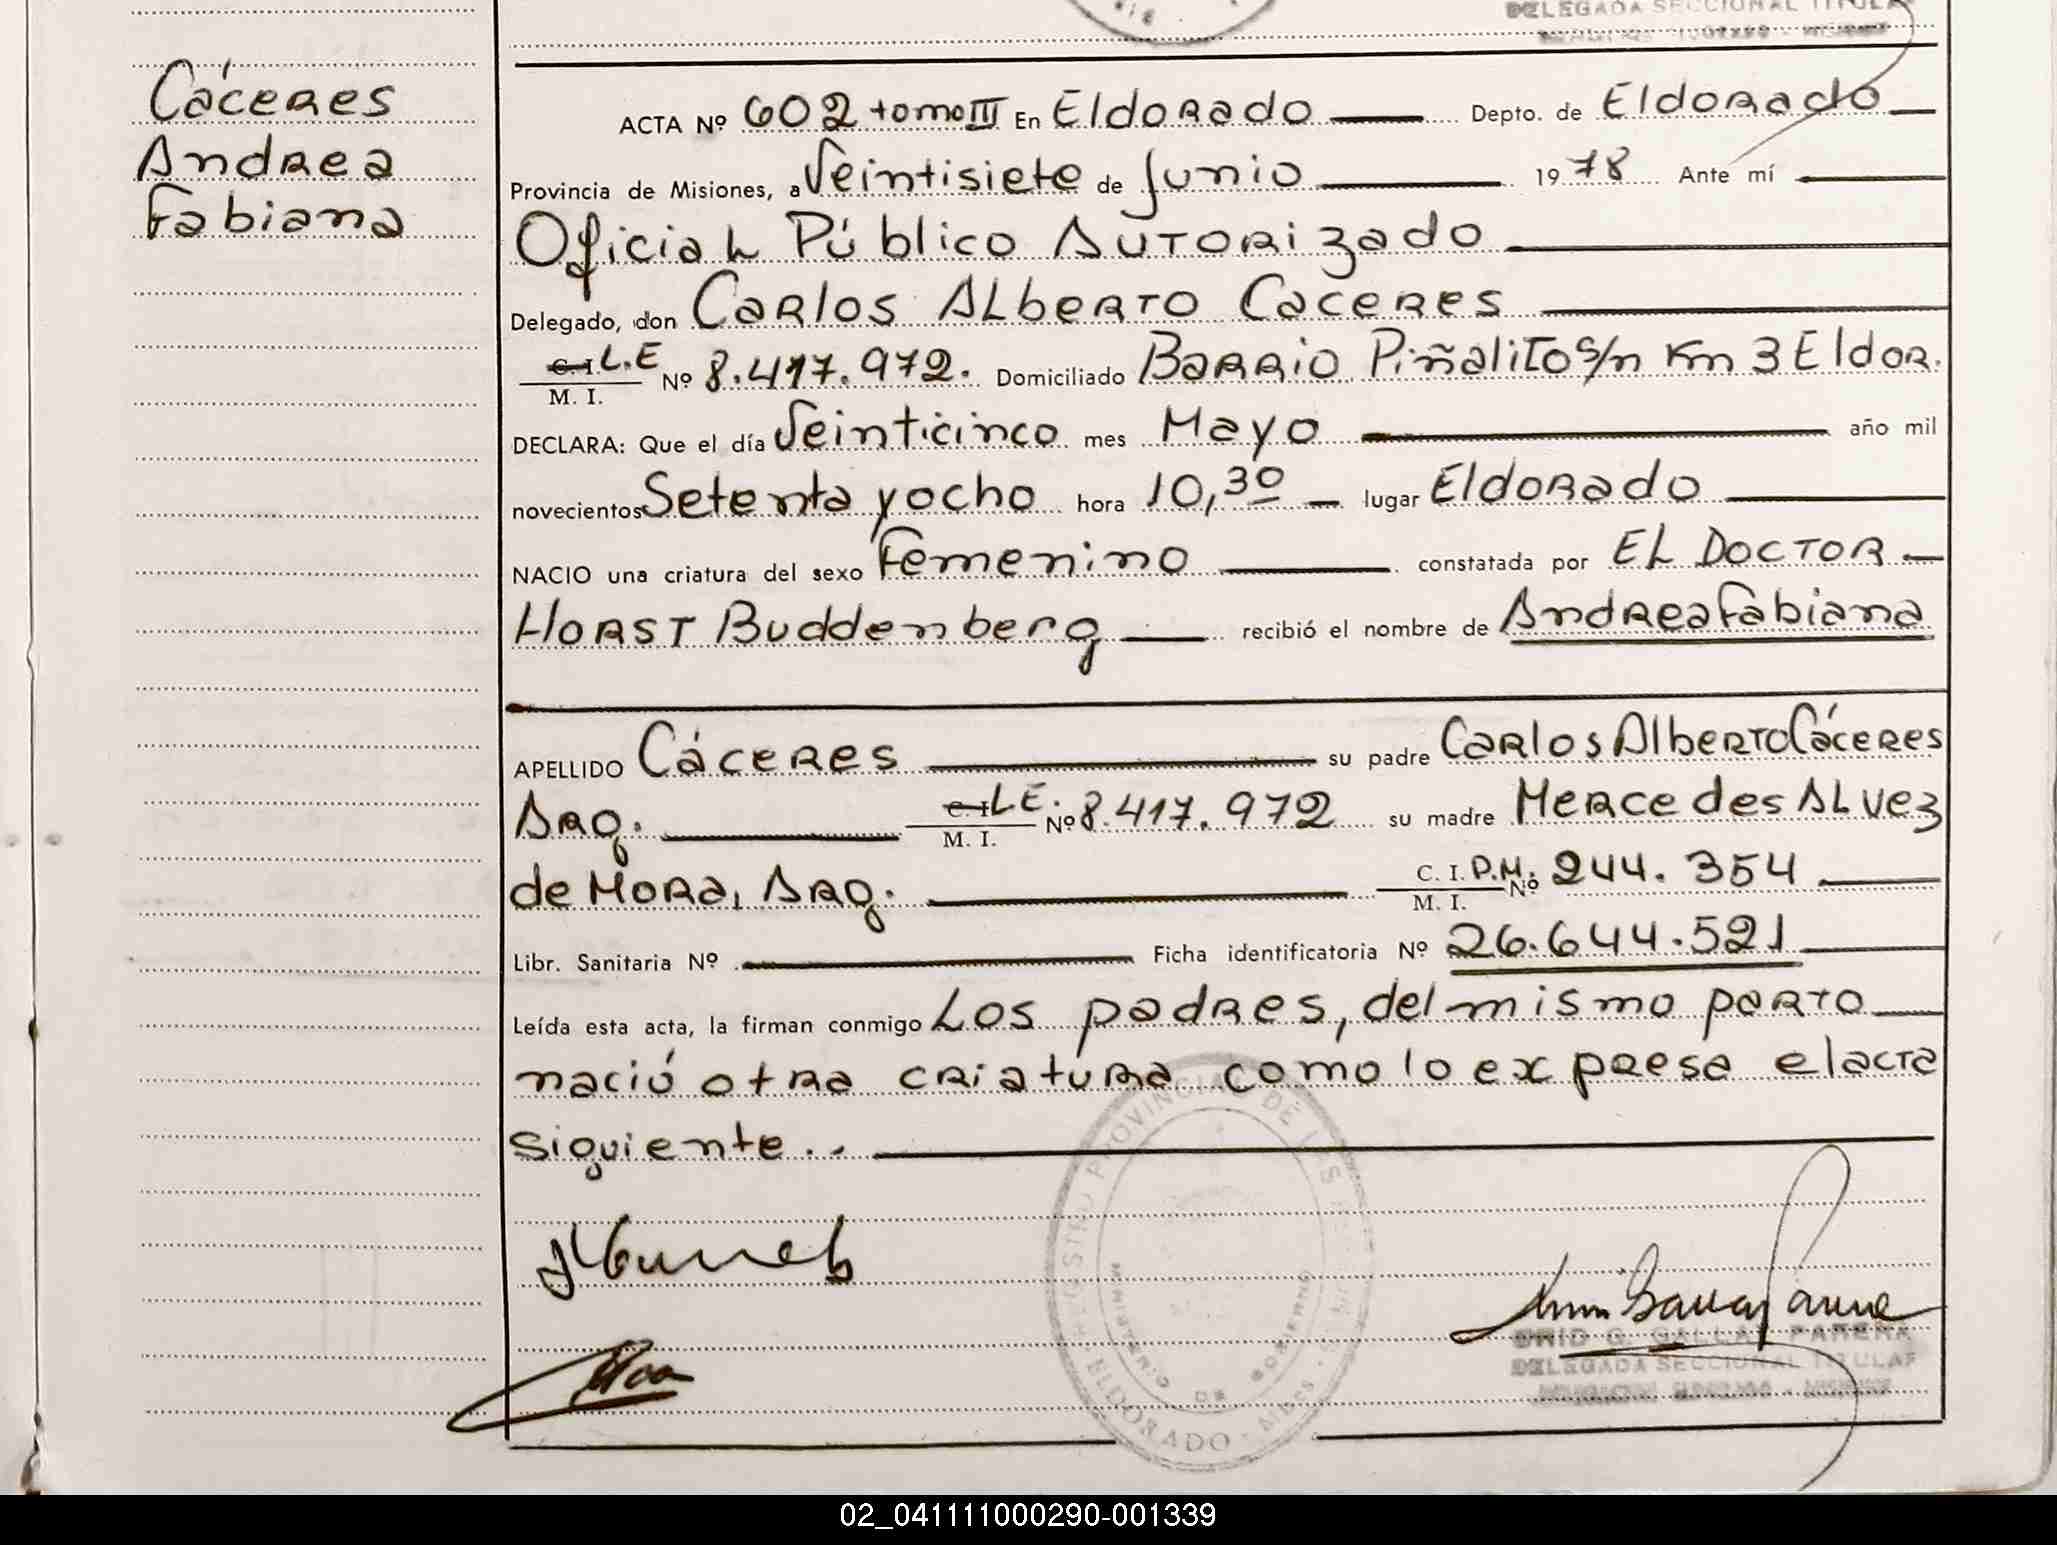 DELEGADA SECCIONAL TITULAR
Cáceres
Andrea
Fabiana
ACTA Nº 602 tomo III En Eldorado Depto. de Eldorado
Provincia de Misiones, a Veintisiete de Junio 1978 Ante mí
Oficial Público Autorizado
Delegado, don Carlos Alberto Caceres
C.I. L.E
M. I. Nº 8.417.972. Domiciliado Barrio Piñalito s/n Km 3 Eldor.
DECLARA: Que el día Veinticinco mes Mayo año mil
novecientos Setenta y ocho hora 10,30 lugar Eldorado
NACIO una criatura del sexo Femenino constatada por El Doctor
Horst Buddenberg recibió el nombre de Andrea Fabiana
APELLIDO Cáceres su padre Carlos Alberto Cáceres
Arg. C.I. L.E. M. I. Nº 8.417.972 su madre Mercedes Alvez
de Mora, Arg. C. I. P.M. M. I. Nº 244.354
Libr. Sanitaria Nº Ficha identificatoria Nº 26.644.521
Leída esta acta, la firman conmigo Los padres, del mismo parto
nació otra criatura como lo expresa el acta
siguiente..
REGISTRO PROVINCIAL DE LAS PERSONAS
MINISTERIO DE GOBIERNO
ELDORADO - Mnes
G. GALLAS PARERA
DELEGADA SECCIONAL TITULAR
02_041111000290-001339